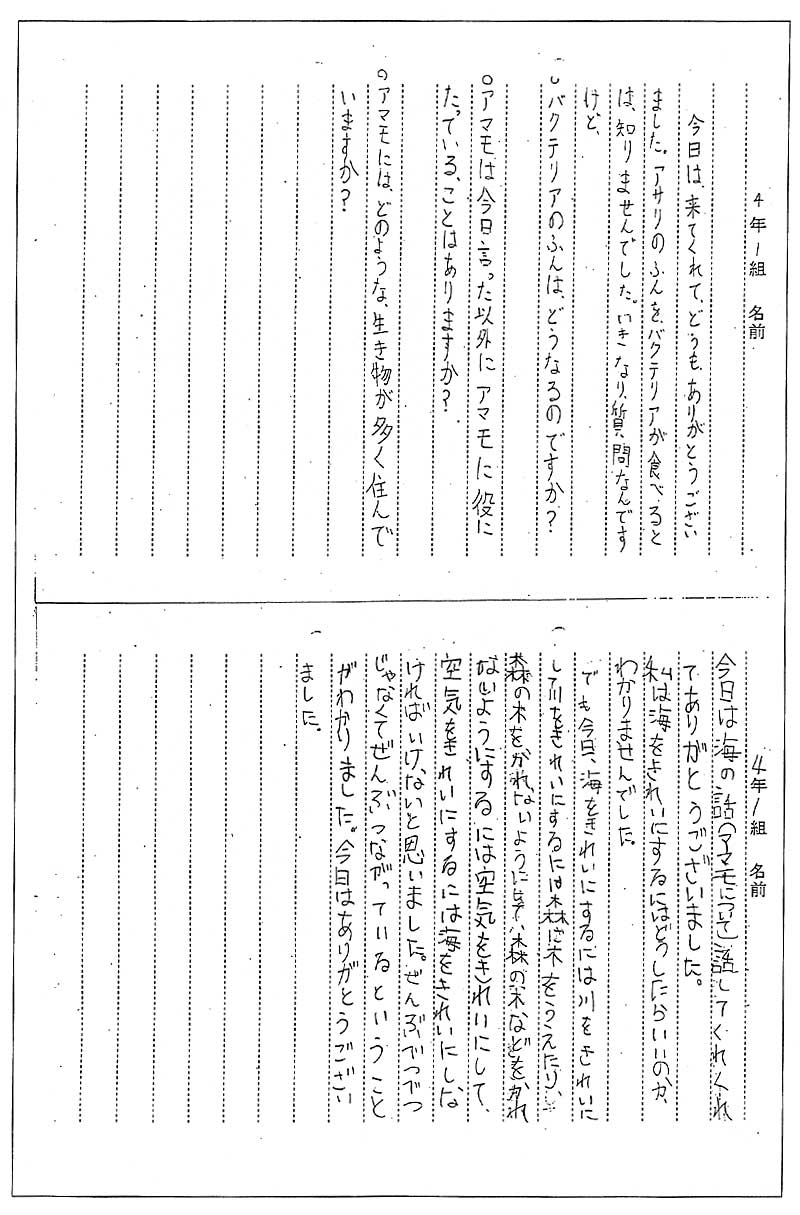 4年1組 名前
今日は、来てくれて、どうも、ありがとうござい
ました。アサリのふんを、バクテリアが食べると
は、知りませんでした。いきなり、質問なんです
けど、
○バクテリアのふんは、どうなるのですか?
○アマモは今日言った以外にアマモに役に
たっている、ことはありますか?
○アマモには、どのような、生き物が多く住んで
いますか?
4年1組 名前
今日は海の話(アマモについて)話してくれくれ
てありがとうございました。
私は海をきれいにするにはどうしたらいいのか、
わかりませんでした。
でも今日、海をきれいにするには川をきれいに
して川をきれいにするには森に木をうえたり、
森の木を、かれないように育て、森の木などをかれ
ないようにするには空気をきれいにして、
空気をきれいにするには海をきれいにしな
ければいけないと思いました。ぜんぶべつべつ
じゃなくてぜんぶつながっているということ
がわかりました。今日はありがとうござい
ました。